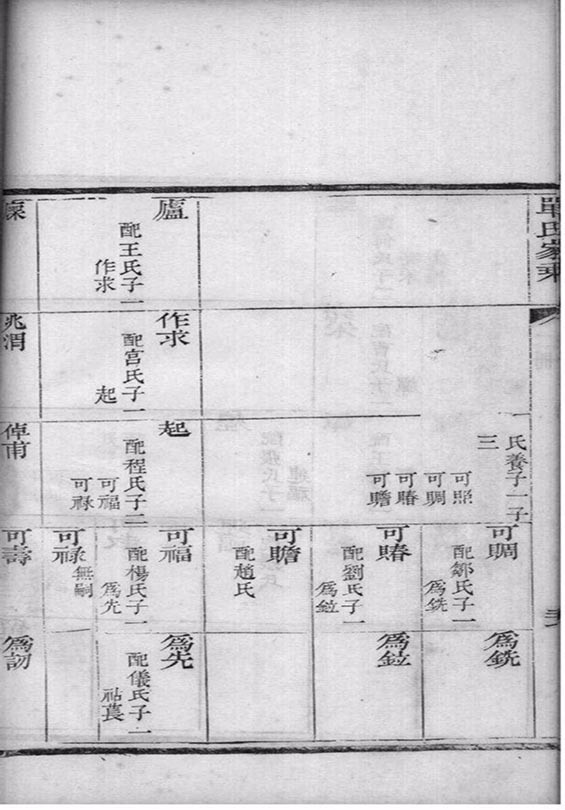 單氏家乘
廬
配王氏子一
作求
作求
配宮氏子一
起
兆渭
氏養子一子
三
可照
可賙
可賰
可贍
起
配程氏子二
可福
可祿
倬甫
可賙
配鄒氏子一
爲銑
可賰
配劉氏子一
爲鉝
可贍
配趙氏
可福
配楊氏子一
爲先
可祿
無嗣
可壽
爲銑
爲鉝
爲先
配儀氏子一
爲訒